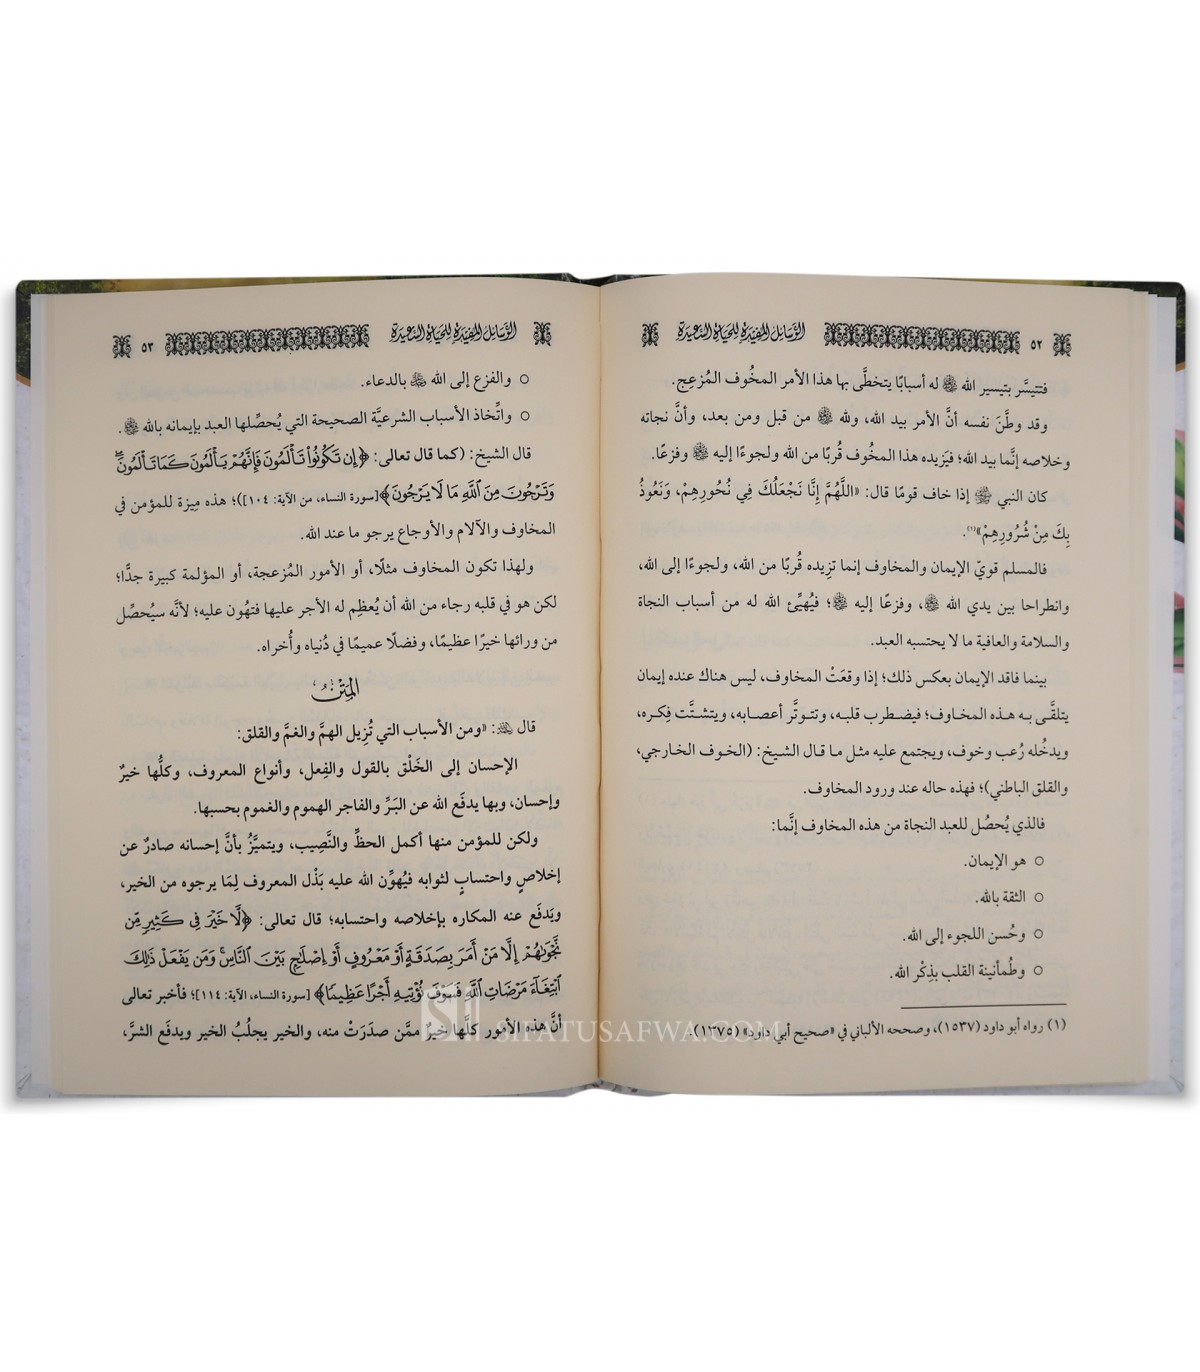 ٥٢ الوسائل المفيدة للحياة السعيدة
فتتيسَّر بتيسير الله ﷻ له أسبابًا يتخطَّى بها هذا الأمر المخُوف المُزعِج.
وقد وطَّنَ نفسه أنَّ الأمر بيد الله، ولله ﷻ من قبل ومن بعد، وأنَّ نجاته
وخلاصه إنَّما بيد الله؛ فيَزيده هذا المخُوف قُربًا من الله ولجوءًا إليه ﷻ وفزعًا.
كان النبي ﷺ إذا خاف قومًا قال: «اللَّهُمَّ إِنَّا نَجْعَلُكَ فِي نُحُورِهِمْ، وَنَعُوذُ
بِكَ مِنْ شُرُورِهِمْ»(١).
فالمسلم قويّ الإيمان والمخاوف إنما تزيده قُربًا من الله، ولجوءًا إلى الله،
وانطراحا بين يدي الله ﷻ، وفزعًا إليه ﷻ؛ فيُهيِّئ الله له من أسباب النجاة
والسلامة والعافية ما لا يحتسبه العبد.
بينما فاقد الإيمان بعكس ذلك؛ إذا وقعَتْ المخاوف، ليس هناك عنده إيمان
يتلقَّى به هذه المخاوف؛ فيضطرب قلبه، وتتوتَّر أعصابه، ويتشتَّت فِكره،
ويدخُله رُعب وخوف، ويجتمع عليه مثل ما قال الشيخ: (الخوف الخارجي،
والقلق الباطني)؛ فهذه حاله عند ورود المخاوف.
فالذي يُحصِّل للعبد النجاة من هذه المخاوف إنَّما:
○ هو الإيمان.
○ الثقة بالله.
○ وحُسن اللجوء إلى الله.
○ وطُمأنينة القلب بذِكْر الله.
(١) رواه أبو داود (١٥٣٧)، وصححه الألباني في «صحيح أبي داود» (١٣٧٥).
الوسائل المفيدة للحياة السعيدة ٥٣
○ والفزع إلى الله ﷻ بالدعاء.
○ واتِّخاذ الأسباب الشرعيَّة الصحيحة التي يُحصِّلها العبد بإيمانه بالله ﷻ.
قال الشيخ: (كما قال تعالى: ﴿إِن تَكُونُوا۟ تَأْلَمُونَ فَإِنَّهُمْ يَأْلَمُونَ كَمَا تَأْلَمُونَ ۖ
وَتَرْجُونَ مِنَ ٱللَّهِ مَا لَا يَرْجُونَ﴾ [سورة النساء، من الآية: ١٠٤])؛ هذه مِيزة للمؤمن في
المخاوف والآلام والأوجاع يرجو ما عند الله.
ولهذا تكون المخاوف مثلًا، أو الأمور المُزعجة، أو المؤلمة كبيرة جدًّا؛
لكن هو في قلبه رجاء من الله أن يُعظِم له الأجر عليها فتهُون عليه؛ لأنَّه سيُحصِّل
من ورائها خيرًا عظيمًا، وفضلًا عميمًا في دُنياه وأُخراه.
المَتْن
قال ﵀: «ومن الأسباب التي تُزيل الهمَّ والغمَّ والقلق:
الإحسان إلى الخَلْق بالقول والفِعل، وأنواع المعروف، وكلُّها خيرٌ
وإحسان، وبها يدفَع الله عن البَرِّ والفاجر الهموم والغموم بحسبها.
ولكن للمؤمن منها أكمل الحظِّ والنَّصِيب، ويتميَّزُ بأنَّ إحسانه صادرٌ عن
إخلاصٍ واحتسابٍ لثوابه فيُهوِّن الله عليه بَذْل المعروف لِمَا يرجوه من الخير،
ويَدفَع عنه المكاره بإخلاصه واحتسابه؛ قال تعالى: ﴿لَّا خَيْرَ فِى كَثِيرٍ مِّن
نَّجْوَىٰهُمْ إِلَّا مَنْ أَمَرَ بِصَدَقَةٍ أَوْ مَعْرُوفٍ أَوْ إِصْلَـٰحٍۭ بَيْنَ ٱلنَّاسِ ۚ وَمَن يَفْعَلْ ذَٰلِكَ
ٱبْتِغَآءَ مَرْضَاتِ ٱللَّهِ فَسَوْفَ نُؤْتِيهِ أَجْرًا عَظِيمًا﴾ [سورة النساء، الآية: ١١٤]؛ فأخبر تعالى
أنَّ هذه الأمور كلَّها خيرٌ ممَّن صدَرَتْ منه، والخير يجلُبُ الخير ويدفَع الشرَّ،
SIFATUSAFWA.COM